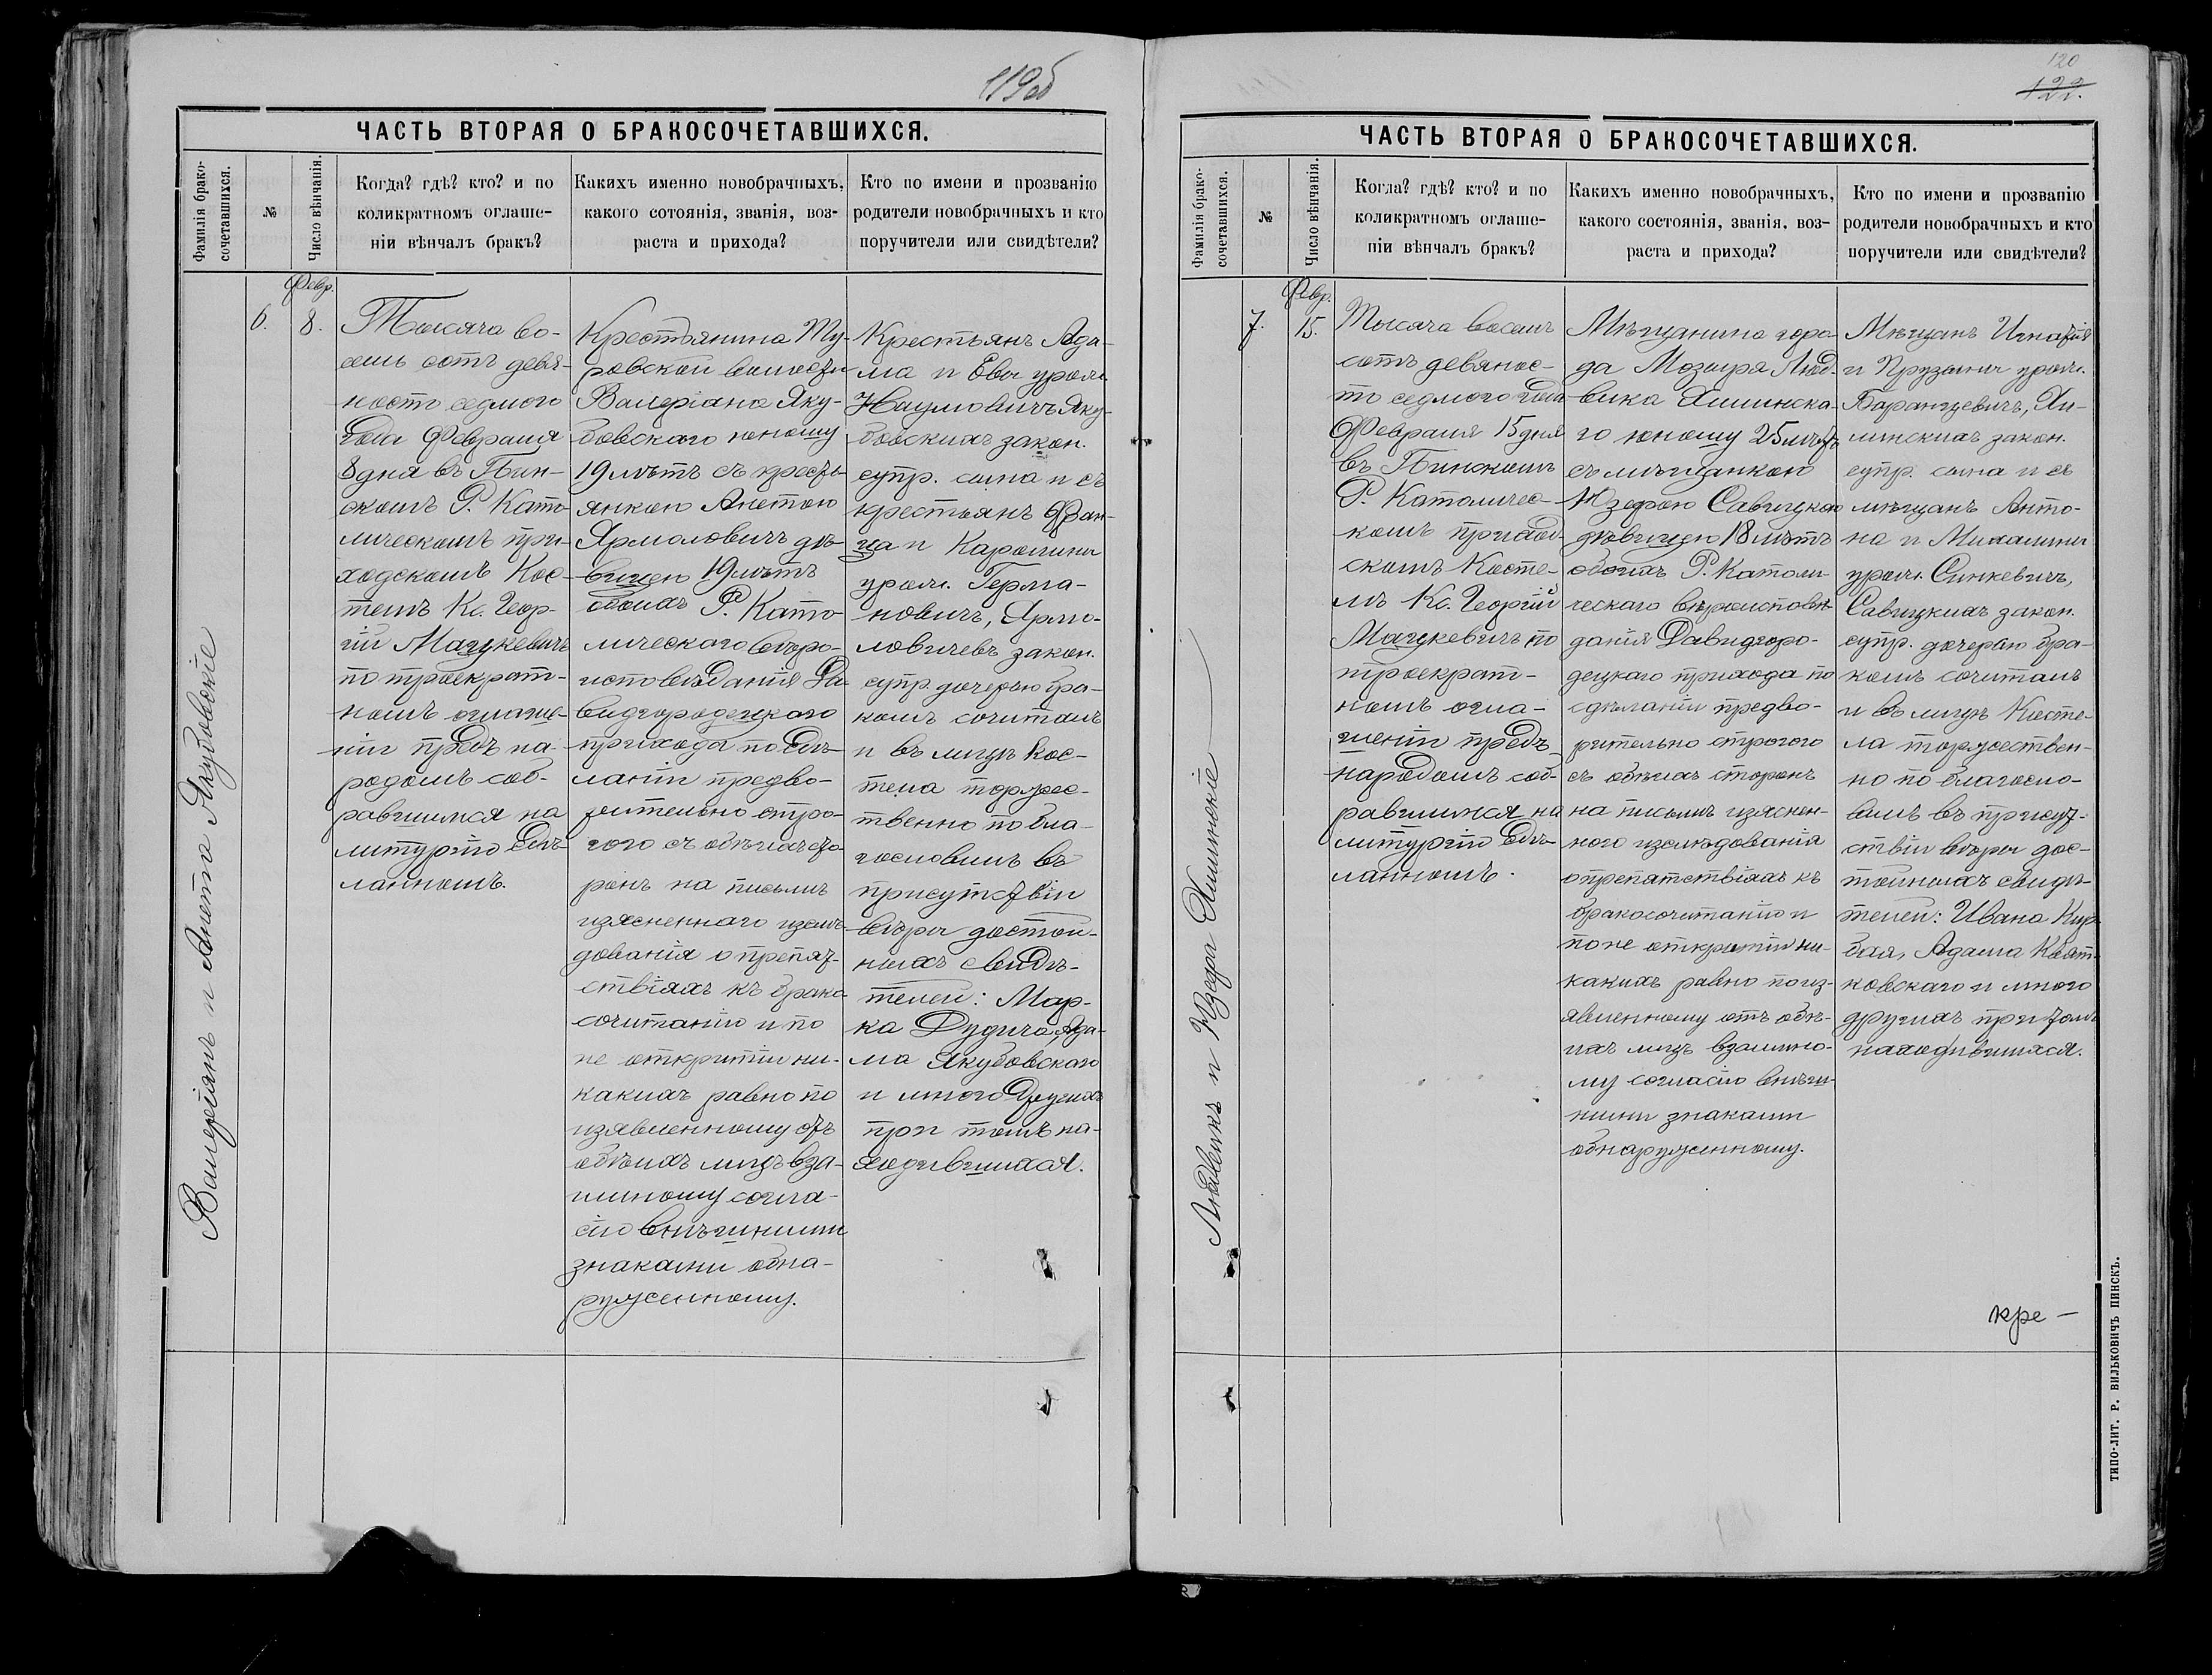 119об
ЧАСТЬ ВТОРАЯ О БРАКОСОЧЕТАВШИХСЯ.
Фамилія брако-
сочетавшихся.
№
Число вѣнчанія.
Когда? гдѣ? кто? и по
коликратномъ оглаше-
ніи вѣнчалъ бракъ?
Какихъ именно новобрачныхъ,
какого сотоянія, званія, воз-
раста и прихода?
Кто по имени и прозванію
родители новобрачныхъ и кто
поручители или свидѣтели?
Валеріянъ и Анета Якубовскіе
6.
Февр.
8.
Тысяча во-
семь сотъ девя-
носто седмого
года Февраля
8 дня въ Пин-
скомъ Р. Като-
лическомъ при-
ходскомъ Кос-
телѣ Кс. Геор-
гій Мацкевичъ
по троекрат-
номъ оглаше-
ніи предъ на-
родомъ соб-
равшимся на
литургію сдѣ-
ланномъ.
Крестьянина Ту-
ровской волости
Валеріана Яку-
бовского юношу
19 лѣтъ съ кресть-
янкою Анетою
Ярмоловичъ дѣ-
вицею 19 лѣтъ
обоихъ Р. Като-
лическаго вѣро-
исповѣданія Да-
видгородецкого
прихода по сдѣ-
ланіи предво-
рительно стро-
гого съ обѣихъ сто-
ронъ на письмѣ
изясненнаго изслѣ-
дованія о препят-
ствіяхъ къ брако-
сочитанію и по
не открытіи ни-
какихъ равно по
изявленному отъ
обѣихъ лицъ вза-
имному согла-
сію внѣшними
знаками обна-
руженному.
Крестьянъ Ада-
ма и Евы урож.
Наумовичъ Яку-
бовскихъ закон.
супр. сына и съ
крестьянъ Фран-
ца и Каролины
урож. Герма-
новичъ, Ярмо-
ловичевъ закон.
супр. дочерью бра-
комъ сочиталъ
и въ лицѣ Кос-
тела торжес-
твенно побла-
гословилъ въ
присутствіи
вѣры достой-
ныхъ свидѣ-
телей: Мар-
ка Дудича, Ада-
ма Якубовскаго
и много другихъ
при томъ на-
ходившихся.
120
122.
ЧАСТЬ ВТОРАЯ О БРАКОСОЧЕТАВШИХСЯ.
Фамилія брако-
сочетавшихся.
№
Число вѣнчанія.
Когда? гдѣ? кто? и по
коликратномъ оглаше-
ніи вѣнчалъ бракъ?
Какихъ именно новобрачныхъ,
какого состоянія, званія, воз-
раста и прихода?
Кто по имени и прозванію
родители новобрачныхъ и кто
поручители или свидѣтели?
Людвикъ и Юзефа
7.
Февр.
15.
Тысяча восемь
сотъ девянос-
то седмого года
Февраля 15 дня
въ Пинскомъ
Р. Католичес-
комъ приход-
скомъ Косте-
лѣ Кс. Георгій
Мацкевичъ по
троекрат-
номъ огла-
шеніи предъ
народомъ соб-
равшимся на
литургію сдѣ-
ланномъ.
Мѣщанина горо-
да Мозыря Люд-
вика
го юношу 25 лѣтъ
съ мѣщанкою
Юзефою Савицкою
дѣвицею 18 лѣтъ
обоихъ Р. Католи-
ческаго вѣроисповѣ-
данія Давидгоро-
децкаго прихода по
сдѣланіи предво-
рительно строгого
съ обѣихъ сторонъ
на письмѣ изяснен-
ного изслѣдованія
о препятствіяхъ къ
бракосочитанію и
по не открытіи ни-
какихъ равно по из-
явленному отъ обѣ-
ихъ лицъ взаимно-
му согласію внѣш-
ними знаками
обнаруженному.
Мѣщанъ Игнатія
и Прузыны урож.
Баранцевичъ,
закон.
супр. сына и съ
мѣщанъ Анто-
на и Михалины
урож. Синкевичъ,
Савицкихъ закон.
супр. дочерью бра-
комъ сочиталъ
и въ лицѣ Косте-
ла торжествен-
но поблагосло-
вилъ въ присут-
ствіи вѣры дос-
тойныхъ свидѣ-
телей: Ивана
Адама Квят-
ковскаго и много
другихъ при томъ
находившихся.
кре —
ТИПО-ЛИТ. Р. ВИЛЬКОВИЧЪ ПИНСКЪ.